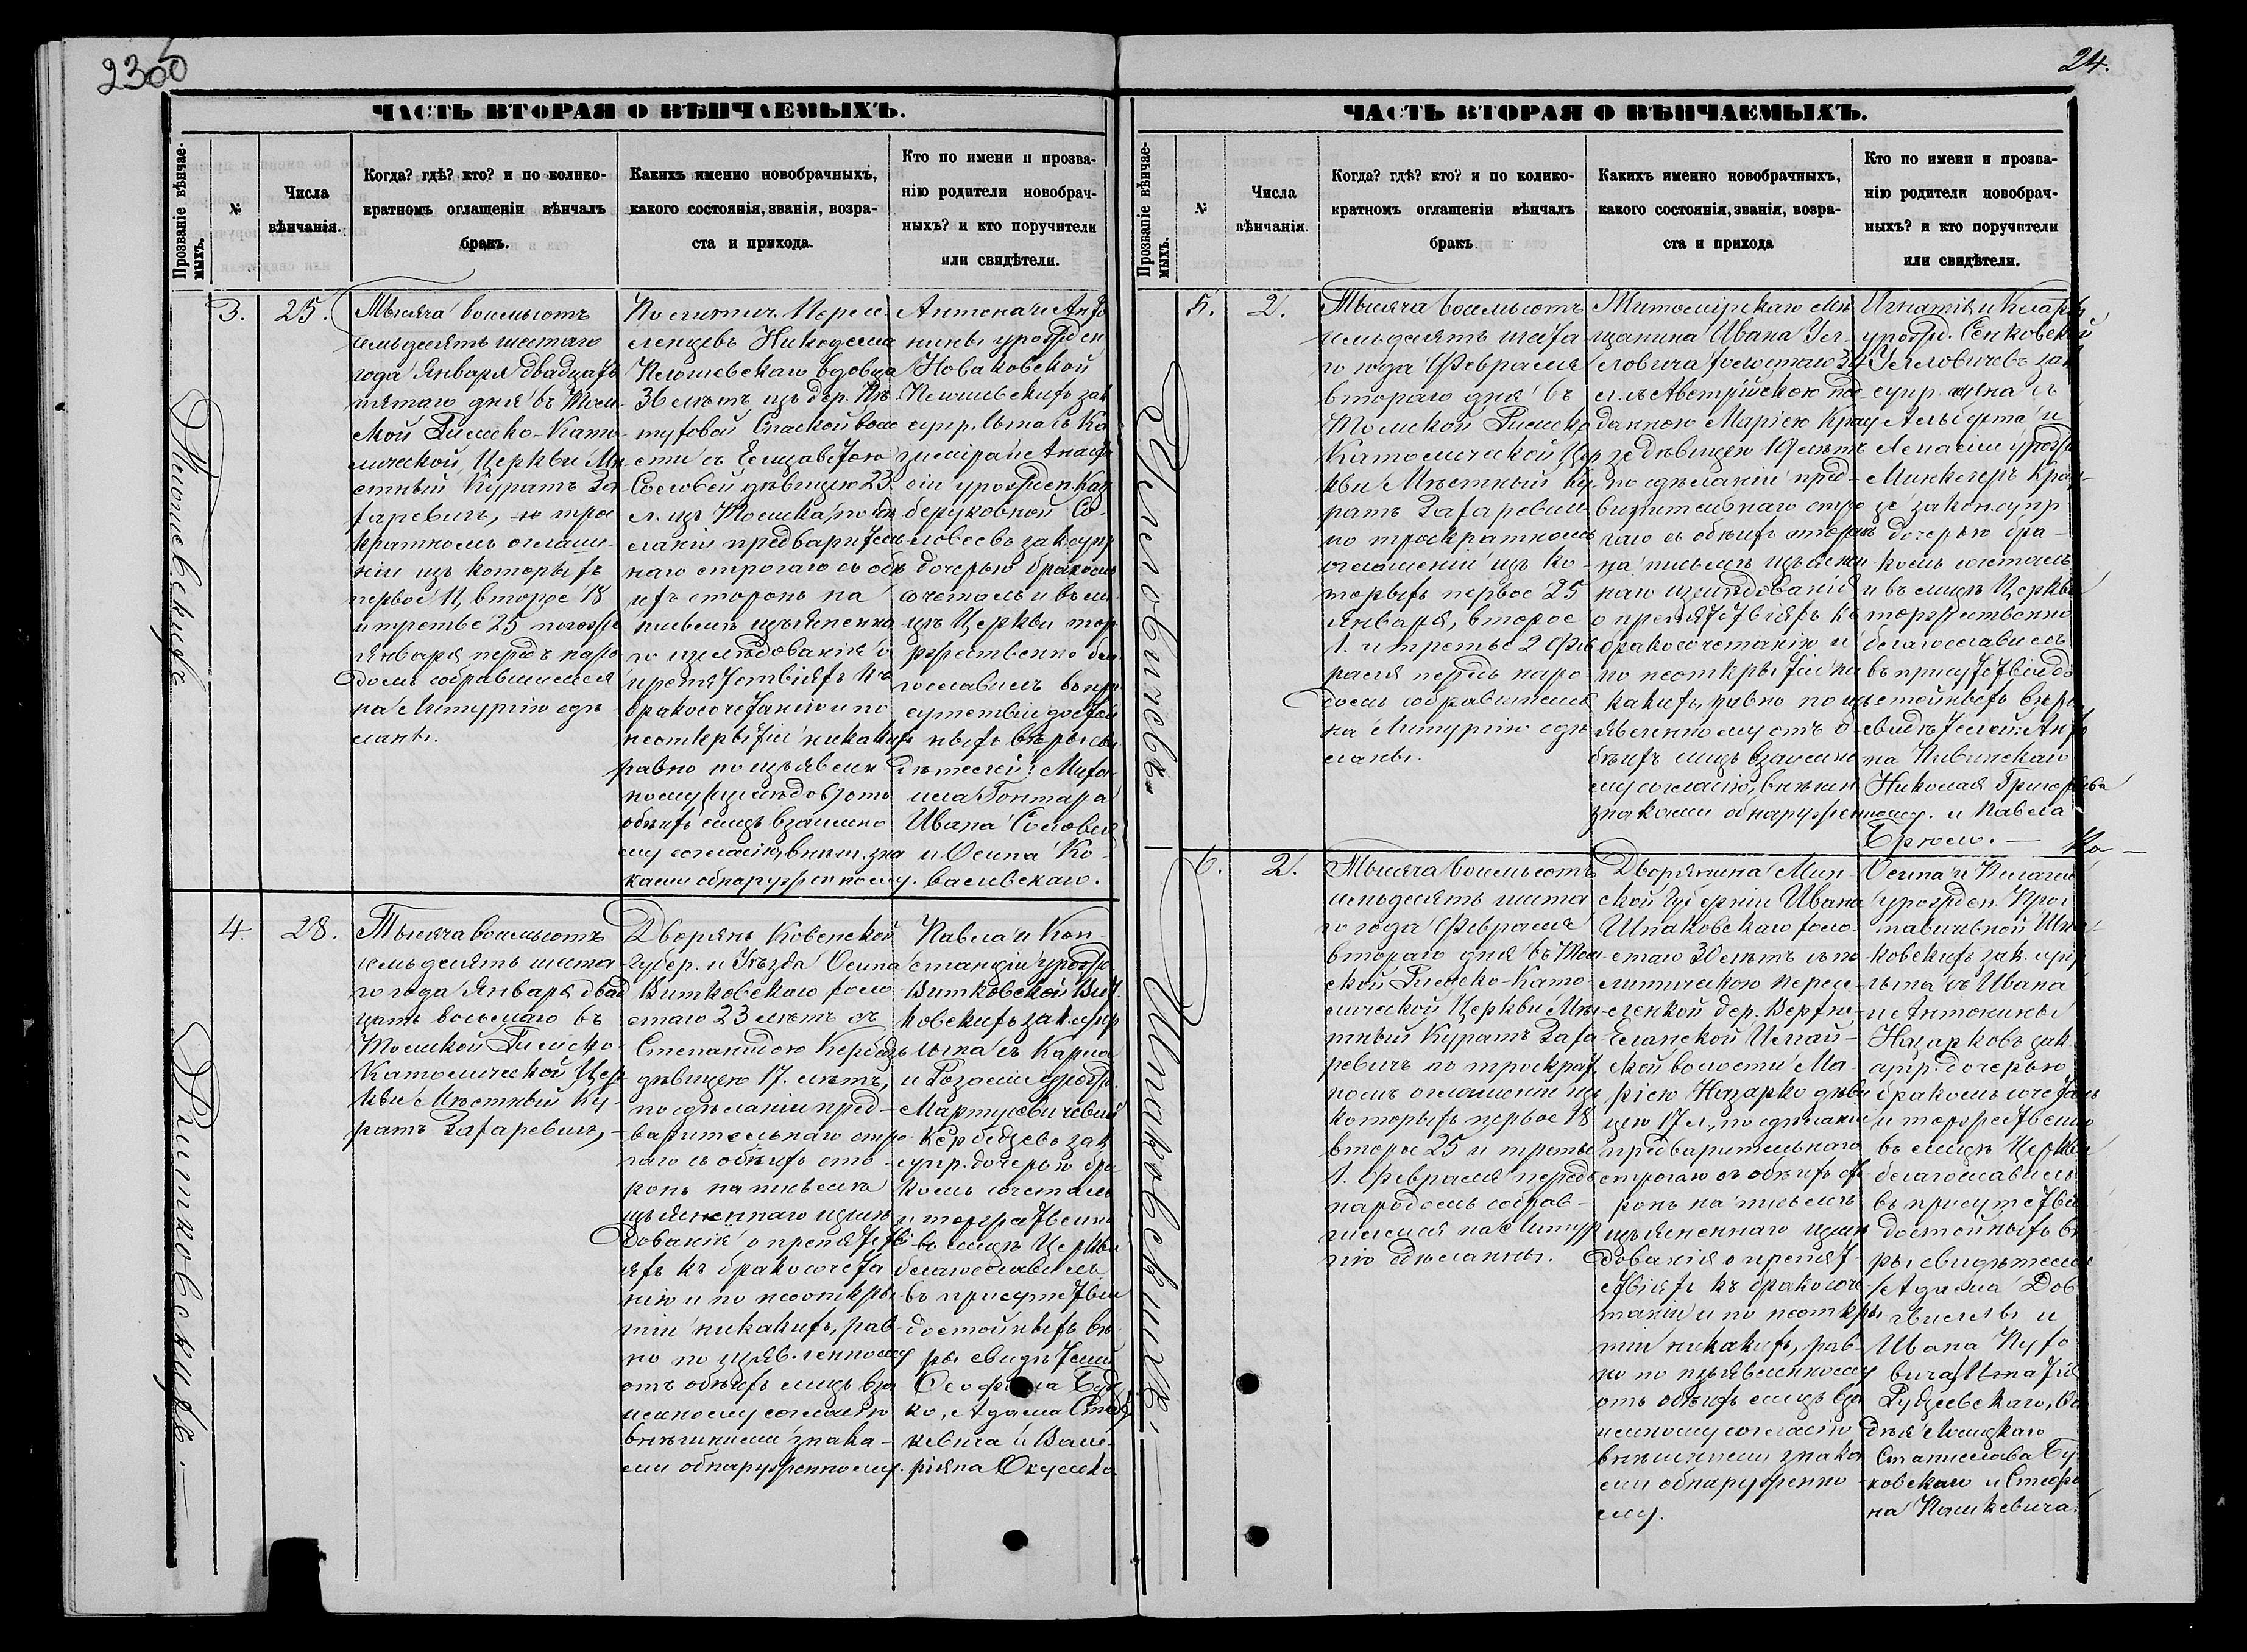 2300
24.
ЧАСТЬ ВТОРАЯ О ВѢНЧАЕМЫХЪ.
Прозваніе вѣнчае-
мыхъ.
№
Числа
вѣнчанія.
Когда? гдѣ? кто? и по колико-
кратномъ оглашеніи вѣнчалъ
бракъ.
Какихъ именно новобрачныхъ,
какого состоянія, званія, возра-
ста и прихода.
Кто по имени и прозва-
нію родители новобрач-
ныхъ? и кто поручители
или свидѣтели.
3.
25.
Тысяча восемьсотъ
семьдесятъ шестаго
года Января двадцать
пятаго дня въ Том-
ской Римско-Като-
лической Церкви Мѣ-
стный Куратъ За-
харевичъ, по трое
кратномъ оглаше-
ніи изъ которыхъ
первое 11, второе 18
и третье 25 того же
Января передъ наро
домъ собравшимся
на Литургію сдѣ
ланы.
Политич. Пересе-
ленцевъ Никодима
вдовца
36 лѣтъ изъ дер.
Спаской воло
сти съ Елизаветою
Соловей дѣвицею 23
л. изъ Томска, по сдѣ
ланіи предваритель
наго строгаго съ обѣ
ихъ сторонъ на
письмѣ изъясненна
го изслѣдованія о
препятствіяхъ къ
бракосочетанію и по
неоткрытіи никакихъ
равно по изъявлен-
ному отъ
обѣихъ лицъ взаимно
му согласію, внѣш. зна
ками обнаруженному.
Антона и Анто
нины урожден
Новаковской
зак
супр. сына съ Ка
зиміра и Анаста
сіи урожден
Со-
ловеевъ зак. супр
дочерью бракомъ
сочеталъ и въ ли-
цѣ Церкви тор
жественно бла
гословилъ въ при
сутствіи достой
ныхъ вѣры сви
дѣтелей: Миха
ила Гонтара
Ивана Соловья
и Осипа Ко-
валевскаго.
4.
28.
Витковскихъ
Тысяча восемьсотъ
семьдесятъ шеста
го года Января двад
цать восьмаго въ
Томской Римско-
Католической Цер
кви Мѣстный Ку-
ратъ Захаревичъ,
Дворянъ Ковенской
Губер. и Уѣзда Осипа
Витковскаго холо
стаго 23 лѣтъ съ
Степанидою Кербедзь
дѣвицею 17. лѣтъ,
по сдѣланіи пред-
варительнаго стро
гаго съ обѣихъ сто
ронъ на письмѣ
изъясненнаго изслѣ
дованія о препятстві
яхъ къ бракосочета
нію и по неоткры
тіи никакихъ, рав-
но по изъявленному
отъ обѣихъ лицъ вза
имному согласію
внѣшними знака-
ми обнаруженному.
Павла и Кон-
станціи урожд
Витковской Вит
ковскихъ зак. супр
сына съ Карла
и Розаліи урожд.
Кербедзевъ зак
супр. дочерью бра
комъ сочеталъ
и торжественно
въ лицѣ Церкви
благословилъ
въ присутствіи
достойныхъ вѣ
ры свидѣтелей
ко, Адама
кевича и Вале-
ріяна
ЧАСТЬ ВТОРАЯ О ВѢНЧАЕМЫХЪ.
Прозваніе вѣнчае-
мыхъ.
№
Числа
вѣнчанія.
Когда? гдѣ? кто? и по колико-
кратномъ оглашеніи вѣнчалъ
бракъ.
Какихъ именно новобрачныхъ,
какого состоянія, званія, возра-
ста и прихода
Кто по имени и прозва-
нію родители новобрач-
ныхъ? и кто поручители
или свидѣтели.
5.
2.
Тысяча восемьсотъ
семьдесятъ шеста
го года Февраля
втораго дня въ
Томской Римско
Католической Цер
кви Мѣстный Ку-
ратъ Захаревичъ
по троекратномъ
оглашеніи изъ ко-
торыхъ первое 25
Января, второе
1. и третье 2 Фев
раля передъ наро
домъ собравшимся
на Литургію сдѣ
ланы.
Житомірскаго Мѣ
щанина Ивана
холостаго 34
л. съ Австрійскою под
данною Маріею Крау
зе дѣвицею 19 лѣтъ
по сдѣланіи пред-
варительнаго стро
гаго съ обѣихъ сторонъ
на письмѣ изъяснен
наго изслѣдованія
о препятствіяхъ къ
бракосочетанію и
по неоткрытіи ни
какихъ, равно по изъ
явленному отъ о-
бѣихъ лицъ взаимно
му согласію, внѣшн
знаками обнаруженному.
Игнатія и Клары
урожд. Сенковской
зак
супр. сына съ
Альберта и
Амаліи урожд
Крау-
зе закон. супр
дочерью бра-
комъ сочеталъ
и въ лицѣ Церкви
торжественно
благословилъ
въ присутствіи до
стойныхъ вѣры
свидѣтелей: Анто
на Пивинскаго
Николая Григорьева
и Павла
6.
2.
Шпаковскихъ.
Тысяча восемьсотъ
семьдесятъ шеста
го года Февраля
втораго дня въ Том-
ской Римско-Като-
лической Церкви Мѣс-
тный Куратъ Заха
ревичъ по троекрат
номъ оглашеніи изъ
которыхъ первое 18
второе 25 и третье
1. Февраля передъ
народомъ собрав-
шимся на Литур
гію сдѣланы.
Дворянина Мин-
ской Губерніи Ивана
Шпаковскаго холо-
стаго 30 лѣтъ съ по-
литическою пересе-
ленкой дер. Верхне-
Еланской
ской волости Ма-
ріею Назарко дѣви
цею 17 л., по сдѣланіи
предварительнаго
строгаго съ обѣихъ сто
ронъ на письмѣ
изъясненнаго изслѣ
дованія о препят-
ствіяхъ къ бракосоче
танію и по неоткры
тіи никакихъ, рав-
но по изъявленному
отъ обѣихъ лицъ вза
имному согласію
внѣшними знака
ми обнаруженно
му.
Осипа и Пелагеи
урожден.
Шпа-
ковскихъ зак. супр
сына съ Ивана
и Антонины
Назарковъ зак
супр. дочерью
бракомъ сочеталъ
и торжественно
въ лицѣ Церкви
благословилъ
въ присутствіи
достойныхъ вѣ
ры свидѣтелей
Адама Дов
и
Ивана
Станислава Бу-
ковскаго и Стефа
на Пашкевича.